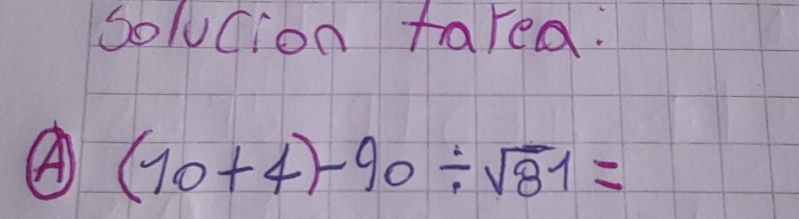 Solucion tarea:
Ⓐ (10+4)-90 ÷ √81 =